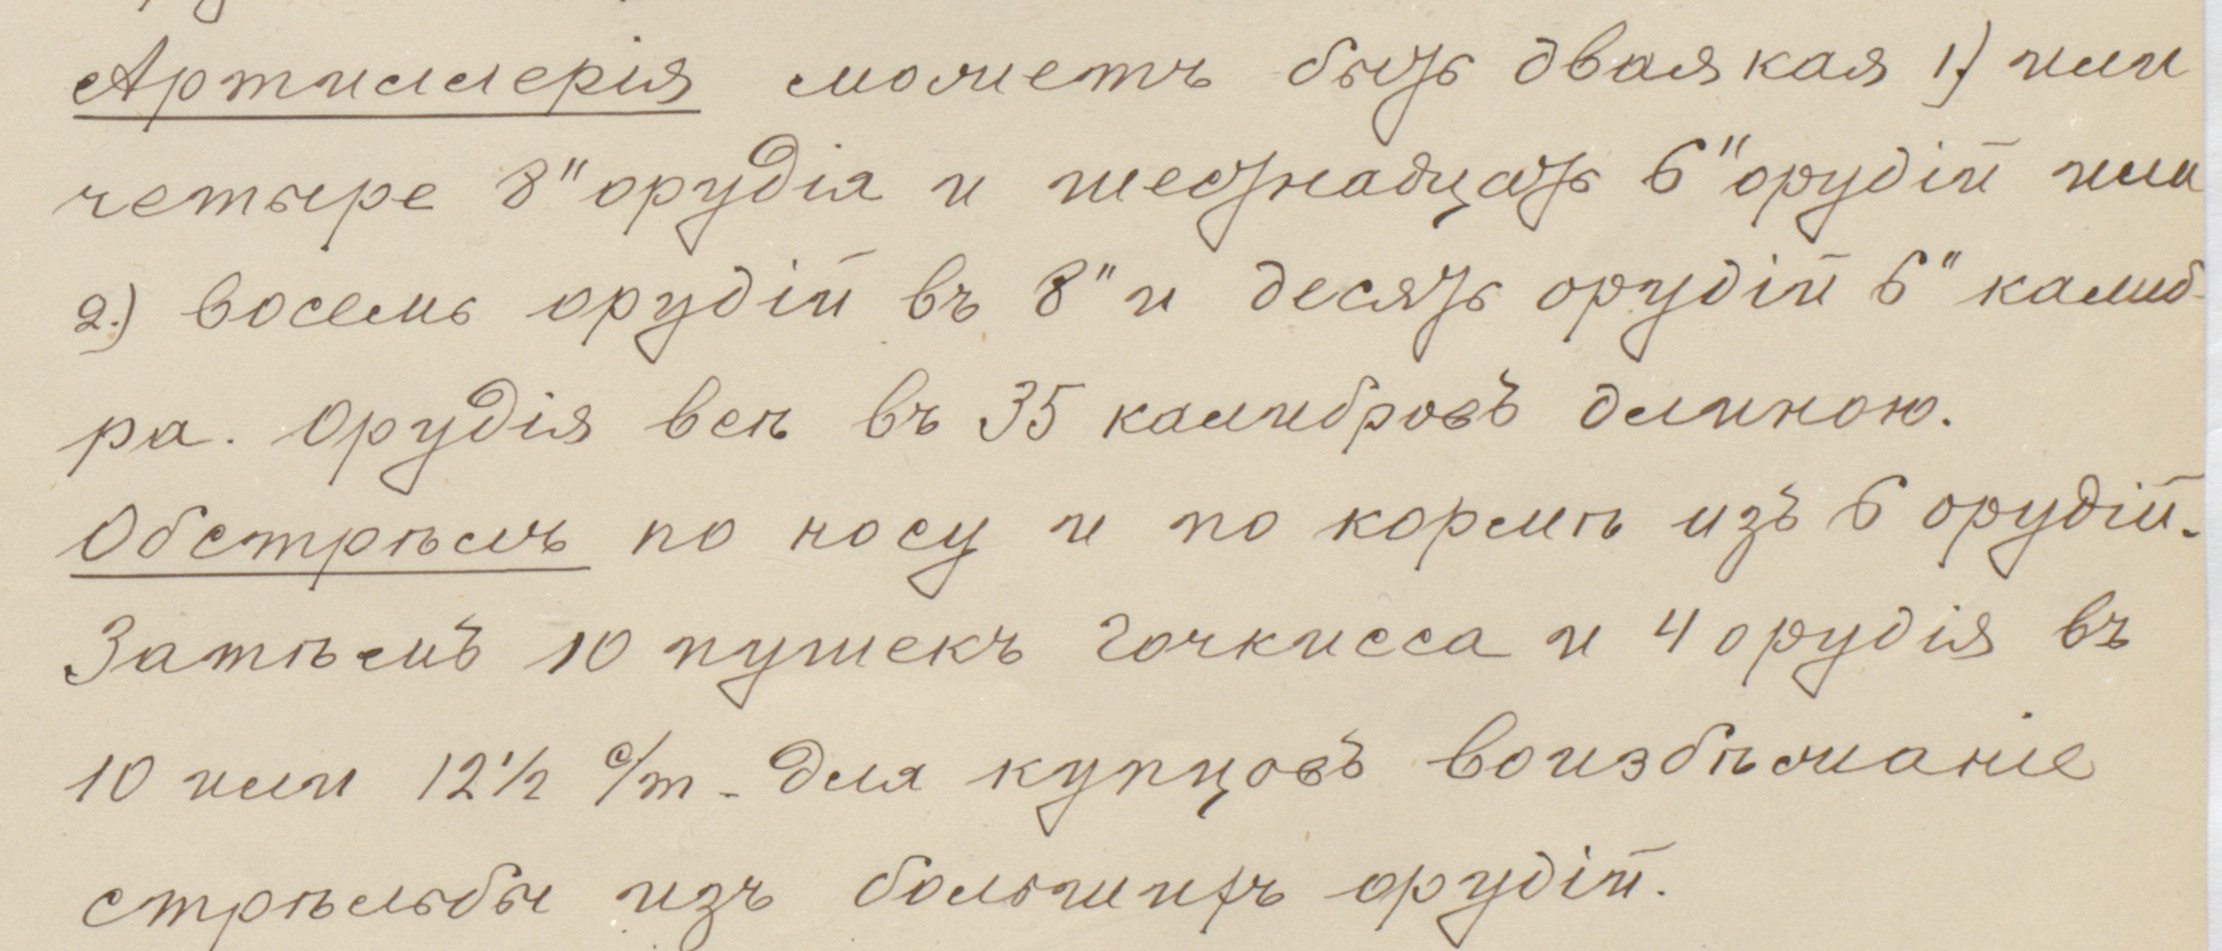 Артиллерія можетъ быть двалякая 1) или
четыре 8" орудія и шестнадцать 6" орудій или
2.) восемь орудій въ 8" и десять орудій 6" калиб-
ра. Орудія всѣ въ 35 калибровъ длиною.
Обстрѣлъ по носу и по кормѣ изъ 6 орудій.
Затѣмъ 10 пушекъ Гочкисса и 4 орудія въ
10 или 12 1/2 с/т - для купцовъ воизбѣжаніе
стрѣльбы изъ большихъ орудій.